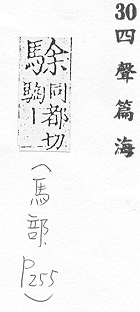 30四聲篇海
⿱余馬同都切
騊丨
（馬部P255）